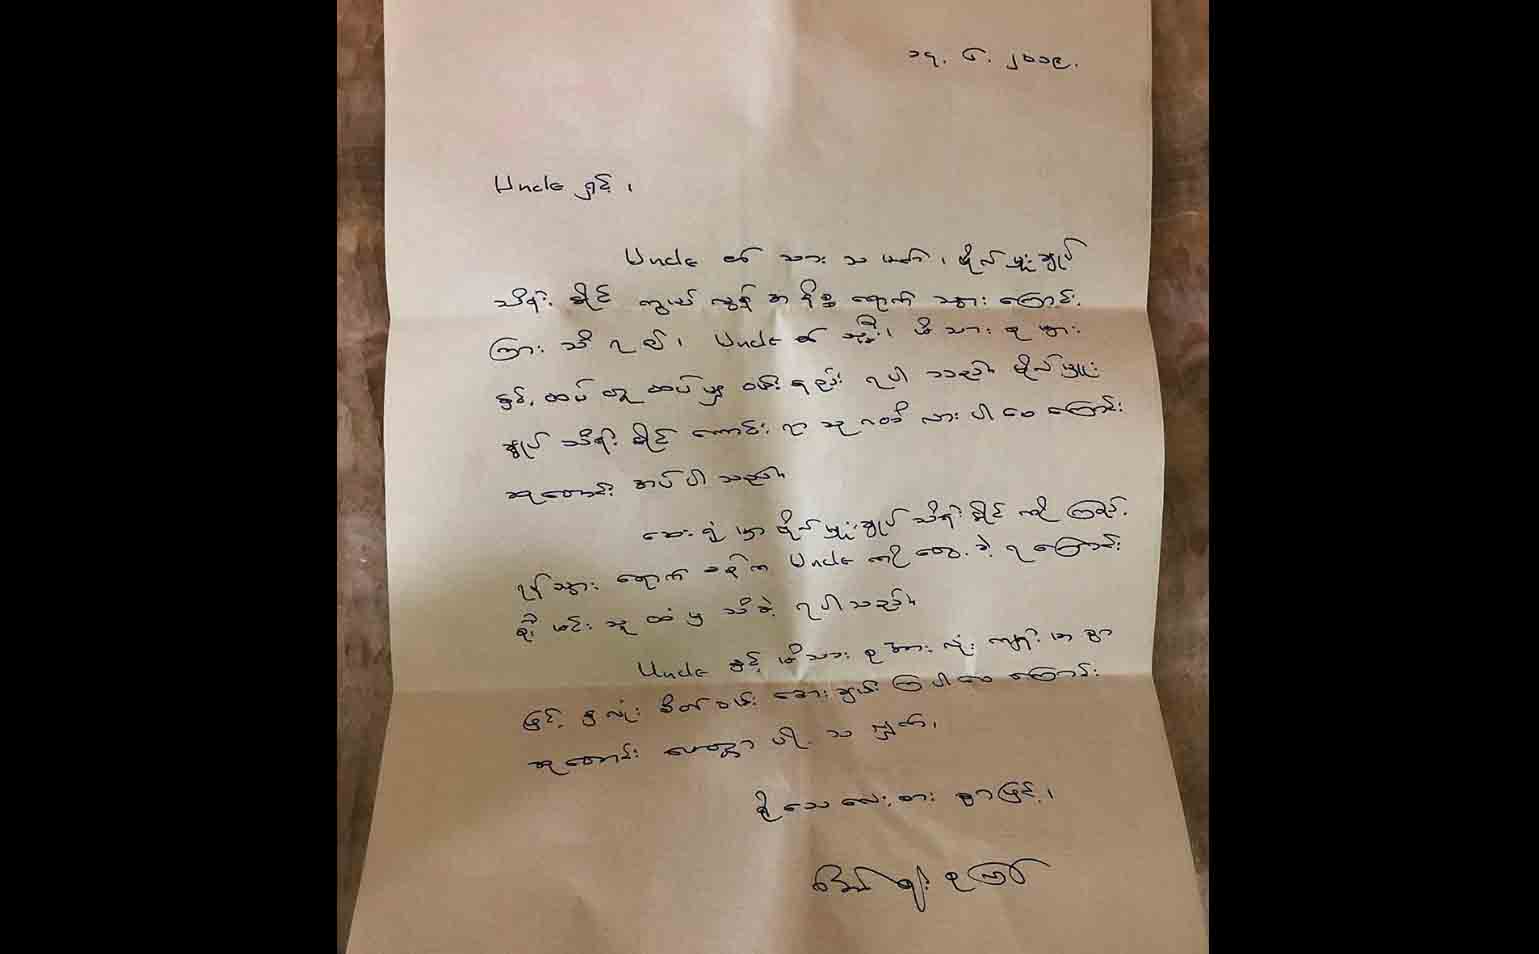 ၁၇. ၆. ၂၀၁၉.
Uncle ရှင့်၊
Uncle ၏ သား သမက်၊ ဗိုလ်မှူးချုပ်
သိန်းနိုင် ကွယ်လွန် အနိစ္စ ရောက် သွား ကြောင်း
ကြား သိ ရ ၍၊ Uncle ၏ သမီး၊ မိသား စု များ
နှင့် ထပ် တူ ထပ် မျှ ဝမ်းနည်း ရပါ သည်။ ဗိုလ်မှူး
ချုပ် သိန်းနိုင် ကောင်း ရာ သုဂတိ လား ပါ စေ ကြောင်း
ဆုတောင်း အပ် ပါ သည်။
ဆေးရုံ မှာ ဗိုလ်မှူးချုပ် သိန်းနိုင် ကို ကြည့်
ရန် သွား ရောက် စဉ် က Uncle ကို တွေ့ ခဲ့ ရ ကြောင်း
စိုးမင်းသူ ထံ မှ သိ ခဲ့ ရပါသည်။
Uncle နှင့် မိသား စု အား လုံး ကျန်း မာ စွာ
ဖြင့် နှလုံး စိတ်ဝမ်း အေး ချမ်း ကြ ပါ စေ ကြောင်း
ဆုတောင်း မေတ္တာ ပို့ သ လျှက်၊
ရို သေ လေး စား စွာ ဖြင့်၊
အောင် ဆန်း စု ကြည်